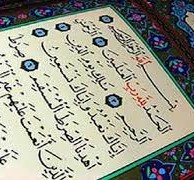 بسم الله الرحمن الرحيم
الحمد لله رب العالمين الرحمن
الرحيم مالك يوم الدين
إياك نعبد وإياك نستعين
اهدنا الصراط المستقيم
الذين أنعمت عليهم غير